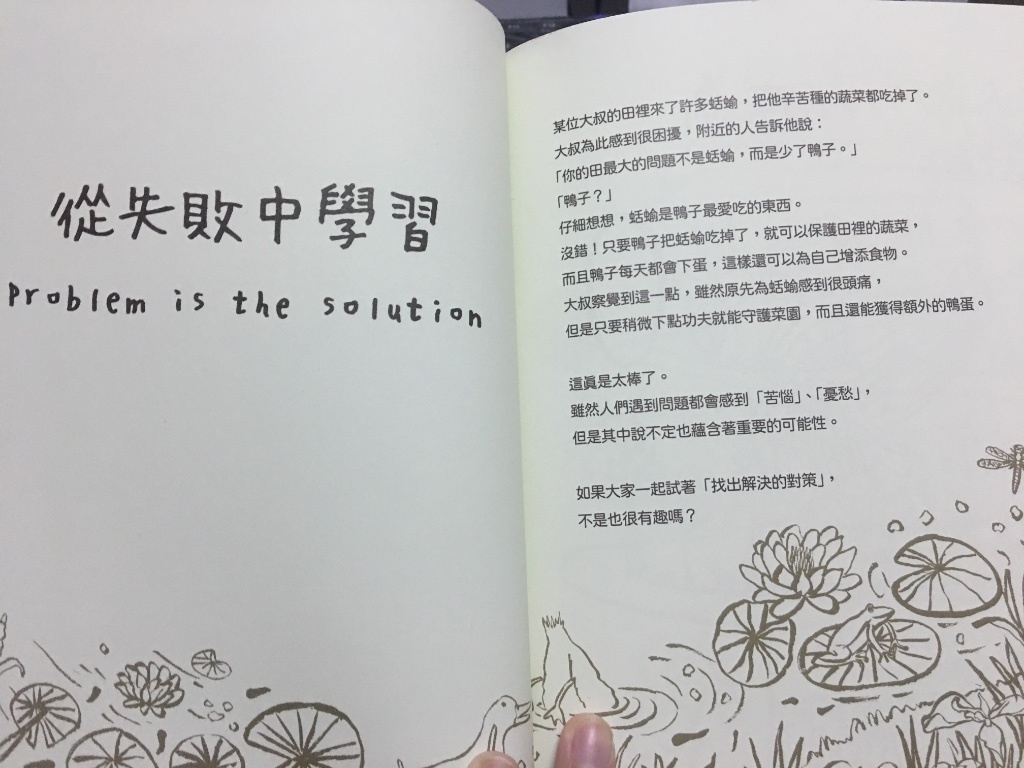 從失敗中學習
Problem is the solution
某位大叔的田裡來了許多蛞蝓，把他辛苦種的蔬菜都吃掉了。
大叔為此感到很困擾，附近的人告訴他說：
「你的田最大的問題不是蛞蝓，而是少了鴨子。」
「鴨子？」
仔細想想，蛞蝓是鴨子最愛吃的東西。
沒錯！只要鴨子把蛞蝓吃掉了，就可以保護田裡的蔬菜，
而且鴨子每天都會下蛋，這樣還可以為自己增添食物。
大叔察覺到這一點，雖然原先為蛞蝓感到很頭痛，
但是只要稍微下點功夫就能守護菜園，而且還能獲得額外的鴨蛋。
這真是太棒了。
雖然人們遇到問題都會感到「苦惱」、「憂愁」，
但是其中說不定也蘊含著重要的可能性。
如果大家一起試著「找出解決的對策」，
不是也很有趣嗎？